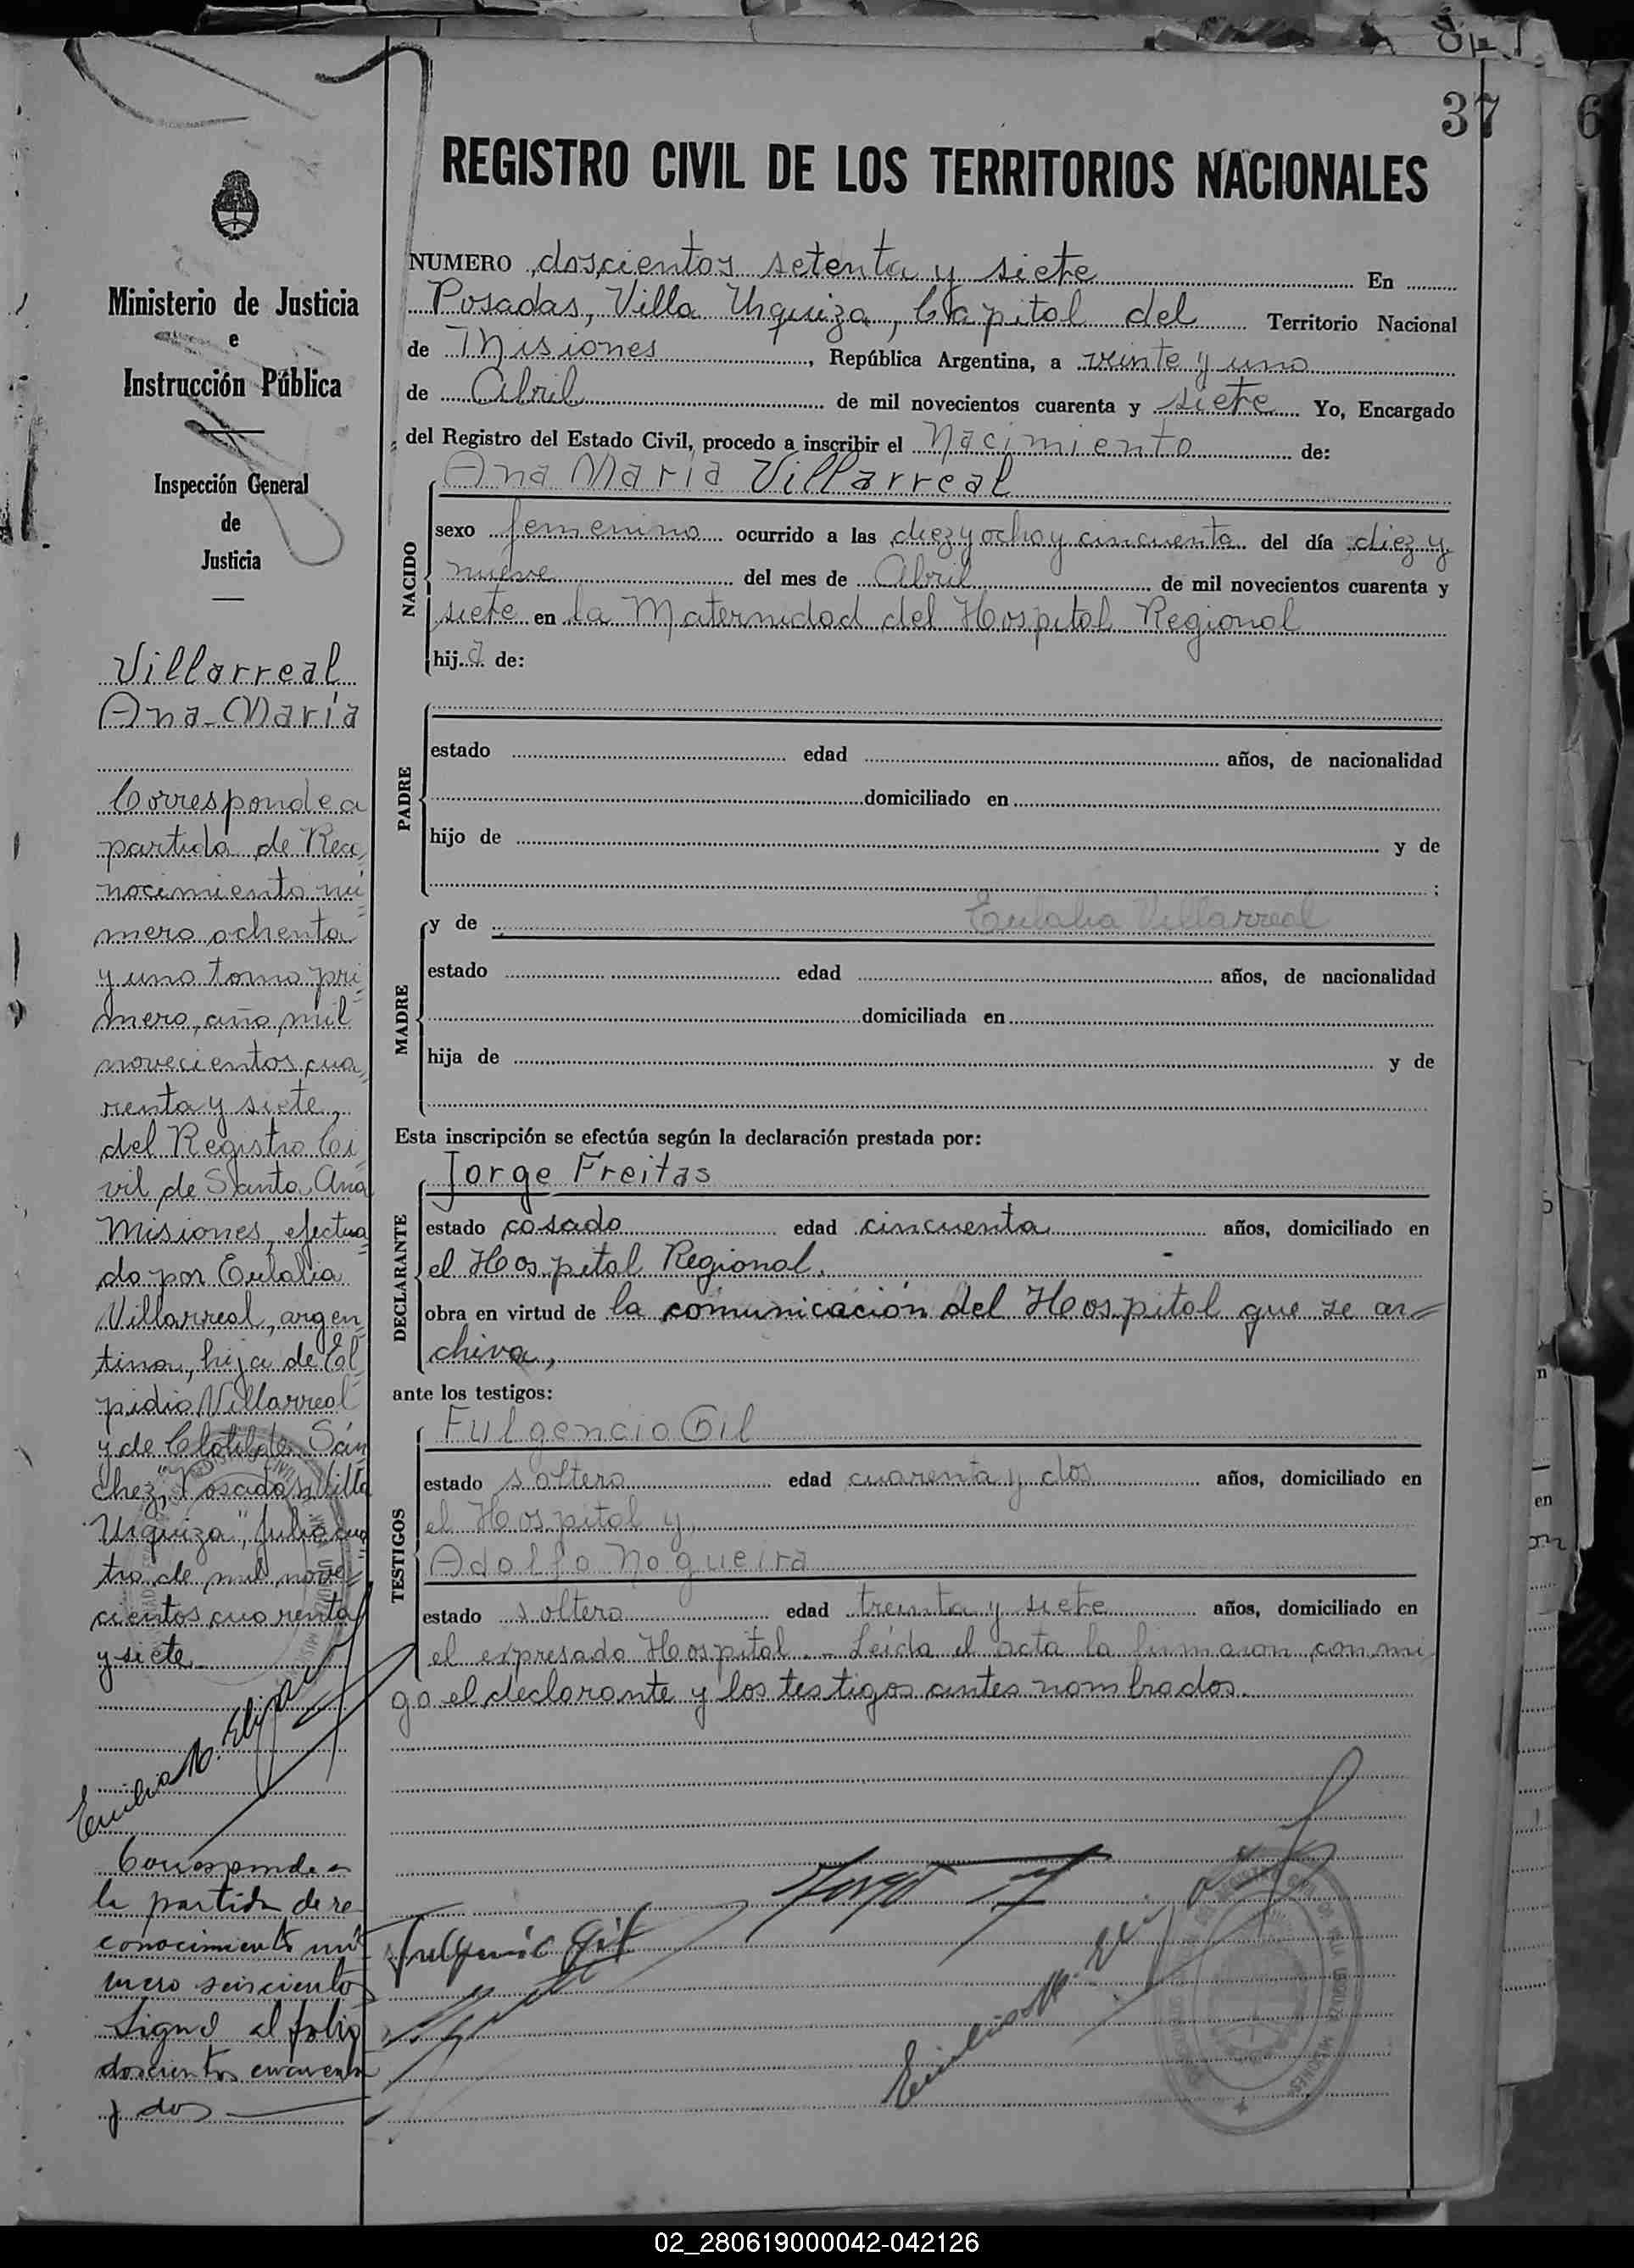 37
REGISTRO CIVIL DE LOS TERRITORIOS NACIONALES
NUMERO doscientos setenta y siete En
Posadas, Villa Urquiza, Capital del Territorio Nacional
de Misiones, República Argentina, a veinte y uno
de Abril de mil novecientos cuarenta y siete Yo, Encargado
del Registro del Estado Civil, procedo a inscribir el Nacimiento de:
NACIDO
Ana María Villarreal
sexo femenino ocurrido a las diez y ocho y cincuenta del día diez y
nueve del mes de Abril de mil novecientos cuarenta y
siete en la Maternidad del Hospital Regional
hija de:
PADRE
estado edad años, de nacionalidad
domiciliado en
hijo de y de
;
MADRE
y de Eulalia Villarreal
estado edad años, de nacionalidad
domiciliada en
hija de y de
Esta inscripción se efectúa según la declaración prestada por:
DECLARANTE
Jorge Freitas
estado casado edad cincuenta años, domiciliado en
el Hospital Regional.
obra en virtud de la comunicación del Hospital que se ar=
chiva,
ante los testigos:
TESTIGOS
Fulgencio Gil
estado soltero edad cuarenta y dos años, domiciliado en
el Hospital y
Adolfo Nogueira
estado soltero edad treinta y siete años, domiciliado en
el expresado Hospital.- Leída el acta la firmaron con mi
go el declarante y los testigos antes nombrados.
Fulgencio Gil
Ministerio de Justicia
e
Instrucción Pública
Inspección General
de
Justicia
Villarreal
Ana-María
Corresponde a
partida de Reco=
nocimiento nú=
mero ochenta
y uno tomo pri=
mero, año mil
novecientos cua=
renta y siete,
del Registro Ci=
vil de Santa Ana
Misiones, efectua=
do por Eulalia
Villarreal, argen=
tina, hija de El=
pidio Villarreal
y de Clotilde Sán=
chez, "Posadas, Villa
Urquiza", Julio cua
tro de mil nove=
cientos cuarenta
y siete
Emilio
Corresponde a
la partida de re
conocimiento nú
mero seiscientos
signo al folio
doscientos cincuenta
y dos
02_280619000042-042126